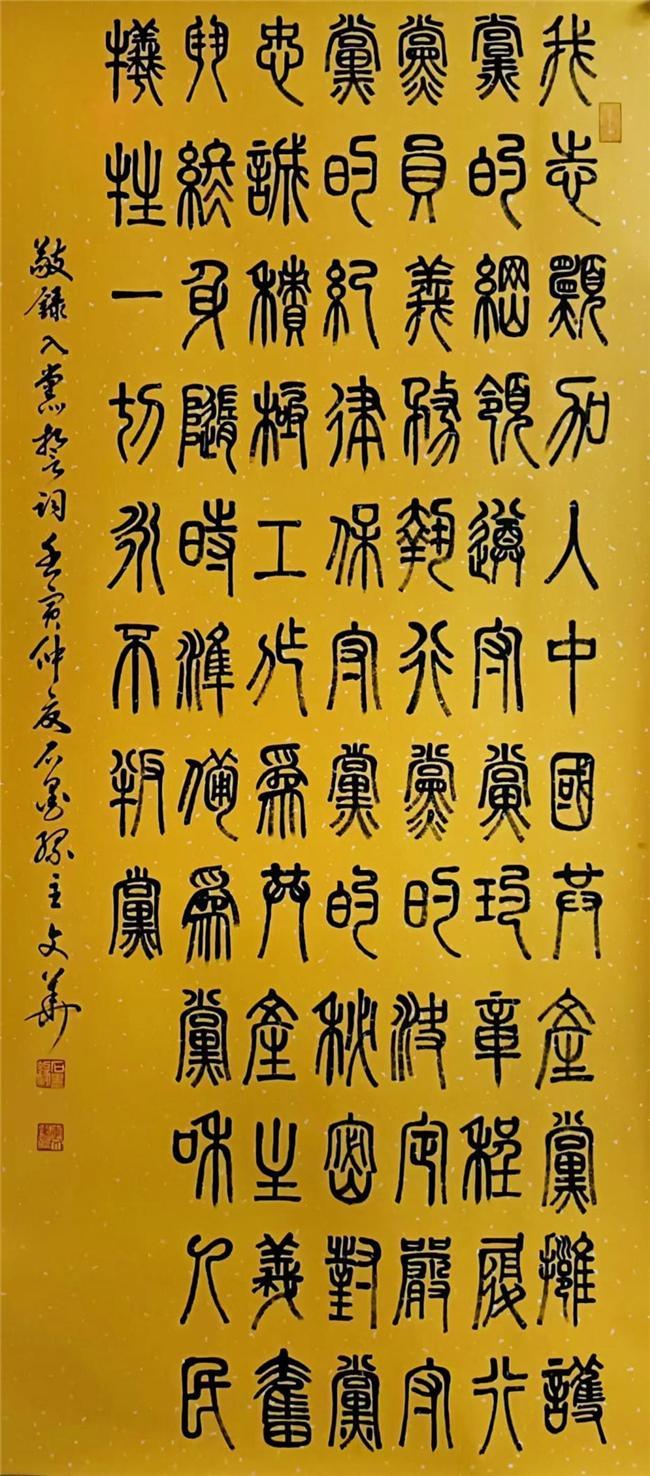 我志願加入中國共產黨擁護
黨的綱領遵守黨的章程履行
黨員義務執行黨的決定嚴守
黨的紀律保守黨的秘密對黨
忠誠積極工作爲共產主義奮
鬥終身隨時準備爲黨和人民
犧牲一切永不叛黨
敬錄入黨誓詞壬寅仲夏石墨緣主文華